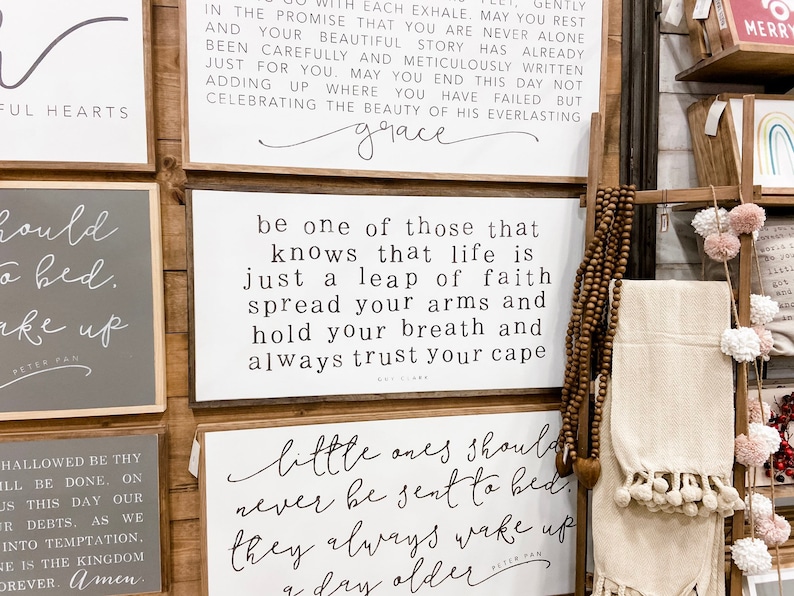 GO WITH EACH EXHALE. MAY YOU REST
IN THE PROMISE THAT YOU ARE NEVER ALONE
AND YOUR BEAUTIFUL STORY HAS ALREADY
BEEN CAREFULLY AND METICULOUSLY WRITTEN
JUST FOR YOU. MAY YOU END THIS DAY NOT
ADDING UP WHERE YOU HAVE FAILED BUT
CELEBRATING THE BEAUTY OF HIS EVERLASTING
grace
FUL HEARTS
MERRY
should
to bed.
wake up
PETER PAN
be one of those that
knows that life is
just a leap of faith
spread your arms and
hold your breath and
always trust your cape
GUY CLARK
HALLOWED BE THY
ILL BE DONE, ON
US THIS DAY OUR
UR DEBTS, AS WE
INTO TEMPTATION,
NE IS THE KINGDOM
FOREVER. Amen.
little ones should
never be sent to bed.
they always wake up
a day older
PETER PAN